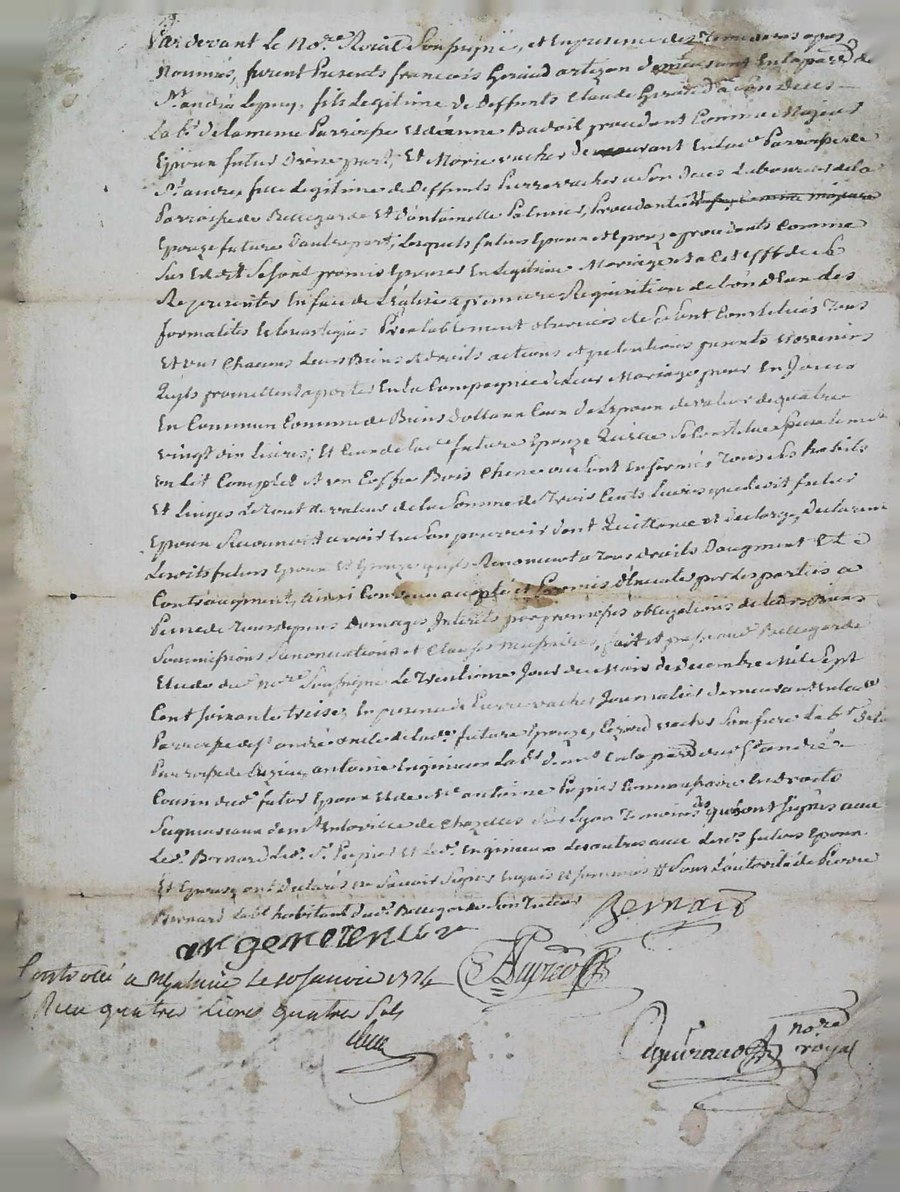 Pardevant Le No.re Roial Soussigné, et En presence des Temoins apres
Nommés, furent Presents françois Giraud artizan demeurant En la par.se de
S.t andré Lepuy, fils Legitime de Deffunts Claude Giraud a son Deces
La.br de la meme Parroisse Et Jeanne Badoil procedant Comme Majeur
Epoux futur d'une part; Et Marie vacher demeurant En lad.e Parroisse de
S.t andré, fille Legitime de Deffunts Pierre vacher a son Deces Laboureur de la
Parroisse de Bellegarde Et d'antoinette Palmier, Procedante
Epouze future d'autre part; Lesquels futurs Epoux et Epouze procedants Comme
Sus Est dit Se sont promis Epouzer En Legitime Mariage Et a Cet Effet de Se
Representer En face de L'église a premiere Requisition de L'un d'eux Les
formalités Ecclesiastiques Préalablement observées Se Sont Constitués Tous
Et uns Chacuns Leurs Biens & droits actions et pretentions presents Et avenirs
Quils promettent aporter En la Compagnie de Leur Mariage pour En Jouir
En Commun Comme de Biens Dottaux Ceux de L'epoux de valeur de quatre
vingt dix Livres; Et Ceux de lad.e future Epouze Quelle Se Constitue
un Lit Complet Et un Coffre Bois Chene ou Sont Enfermés Tous Ses habits
Et Linges Le Tout de valeur de la Somme de Trois Cents Livres que Ledit futur
Epoux Reconnoit avoir En Son pouvoir dont Quittance et decharge, Declarant
Lesdits futurs Epoux Et Epouze quils Renoncent a Tous droits D'augment Et
Contreaugment, ainsi Convenu accepté et Promis d'Executer par Les parties a
Peine de Tous depens Domages Interets par promesses obligations de Leurs Biens
Soummissions Renonciations et Clauses necessaires, fait et passé aud. Bellegarde
Etude du No.re Soussigné Le Trentieme Jour du Mois de decembre Mil Sept
Cent soixante treize; En presence de Pierre vacher Journalier demeurant En lad.e
Parroisse de S.t andré oncle de lad.e future Epouze, vacher Son frere La.br
Parroisse de antoine La.br dem.t En la par.se dud. S.t andré
Cousin dud. futur Epoux Et de M.e antoine Pupier Commissaire En droits
Seigneuriaux dem.t En la ville de Chazelles Sur Lyon Temoins qui ont Signés avec
Led. Bernard Led. S.r Pupier Et Led. Les autres avec Lesd. futurs Epoux
Et Epouze ont Declarés ne Savoir Signer Enquis et Sommés # Sous L'autorité de Pierre
Bernard La.br habitant dud. Bellegarde Son Tuteur
Bernard
Controllé a Le 10 Janvier 1774
Recu quatre Livres quatre Sols
no.re
royal